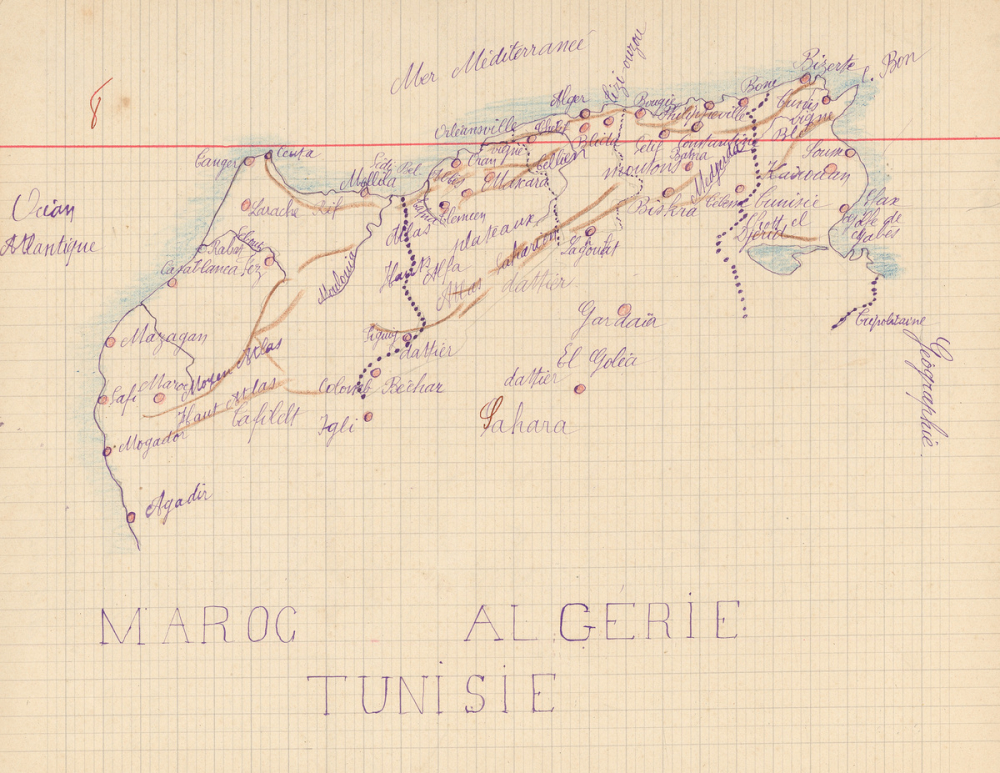 8
Mer Méditerraneé
Tizi ouzou
Bizerte
c. Bon
Alger
Bougie
Philippeville
Bone
Tunis
Orléansville
vigne
Blé
Tanger
Ceuta
Mellila
Sidi Bel
Oran
Blida
Setif
Sousse
Larache
Rif
Mascara
moutons
Batna
Medjerda
Kairouan
Ocian
Atlantique
Tlemcen
Biskra
Tunisie
Sfax
Rabat
Atlas
plateaux
Chott el
Djérid
Casablanca
Fez
Moulouia
Hauts
Alfa
Atlas
Saharien
Lagouat
dattier
Mazagan
Gardaïa
Tripolitaine
Figuig
dattier
El Goléa
Safi
Maroc
Moyen Atlas
Colomb Béchar
dattier
Géographie
Haut Atlas
Tafilelt
Igli
Sahara
Mogador
Agadir
MAROC ALGÉRIE
TUNISIE